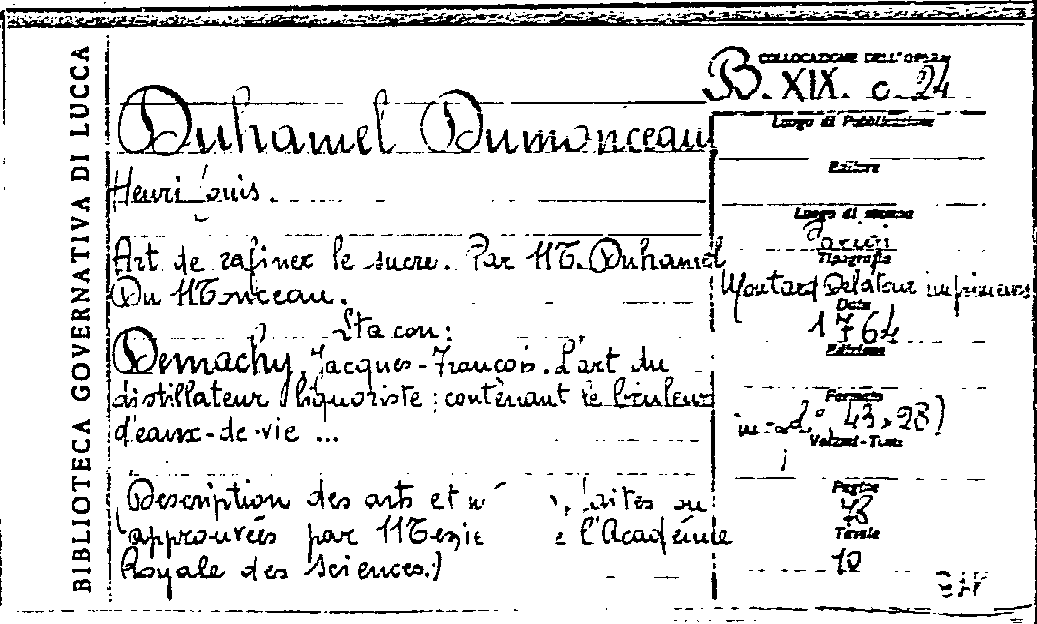 BIBLIOTECA GOVERNATIVA DI LUCCA
Duhamel Dumonceau
Henri Louis.
Art de rafiner le sucre. Par M. Duhamel
Du Monceau.
Sta con:
Demachy, Jacques-François. L'art du
distillateur liquoriste; contenant le bruleur
d'eaux-de-vie ...
(Description des arts et faites ou
approuvées par l'Académie
Royale des Sciences.)
COLLOCAZIONE DELL'OPERA
B. XIX. c. 24
Luogo di Pubblicazione
Editore
Luogo di stampa
Parigi
Tipografia
Moutard Delatour imprimeurs
Data
1764
Edizione
Formato
43×28)
Volumi-Tomi
1
Pagine
78
Tavole
10